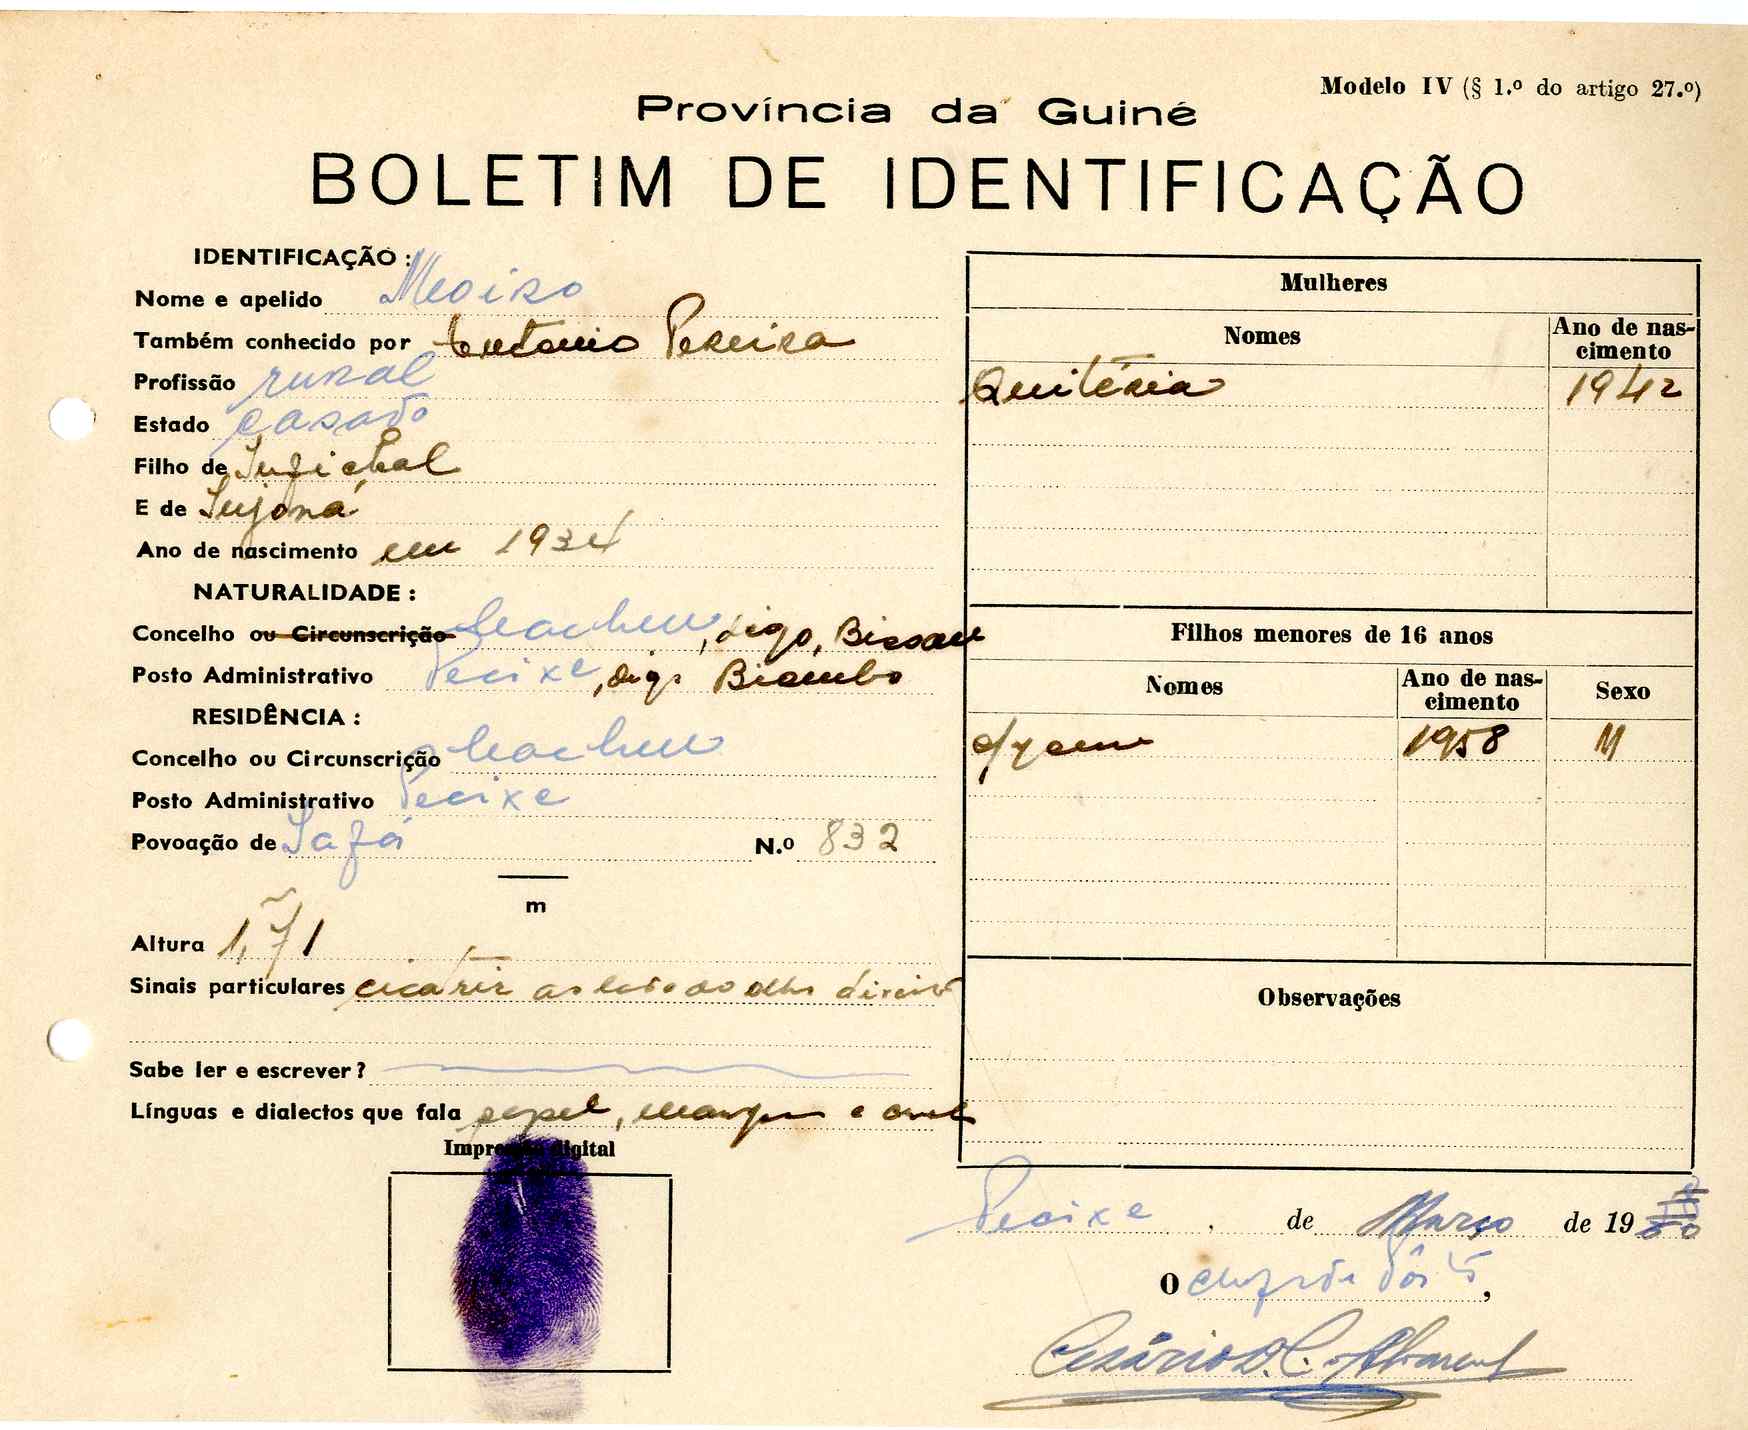 Modelo IV (§ 1.º do artigo 27.º)
Província da Guiné
BOLETIM DE IDENTIFICAÇÃO
IDENTIFICAÇÃO :
Nome e apelido
Também conhecido por Pereira
Profissão rural
Estado casado
Filho de
E de
Ano de nascimento em 1934
NATURALIDADE :
Concelho ou Circunscrição Cacheu, digo, Bissau
Posto Administrativo Pecixe, digo Biombo
RESIDÊNCIA :
Concelho ou Circunscrição Cacheu
Posto Administrativo Pecixe
Povoação de N.º 832
m
Altura 1,71
Sinais particulares cicatriz ao lado do olho direito
Sabe ler e escrever ?
Línguas e dialectos que fala papel,
Impressão digital
Mulheres
Nomes Ano de nas-
cimento
Quitéria 1942
Filhos menores de 16 anos
Nomes Ano de nas-
cimento Sexo
1958 M
Observações
Pecixe, de Março de 19
O chefe de Pôsto,